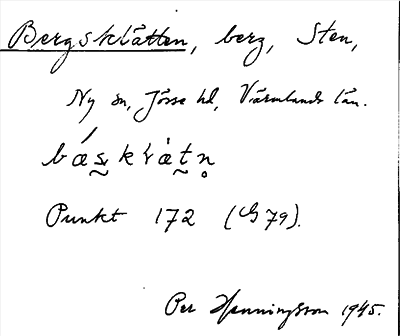 Bergsklätten, berg, Sten,
Ny sn, Jösse hd, Värmlands län.
Punkt 172 (G 79).
Per Henningsson 1945.